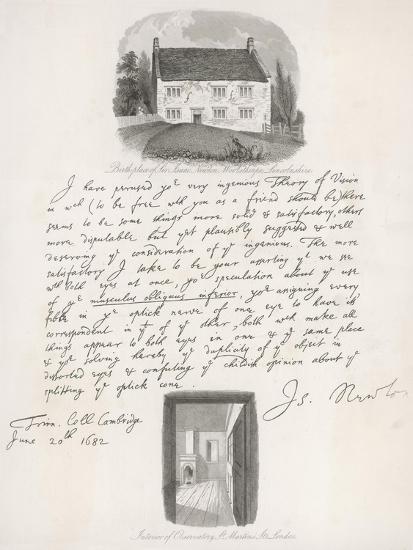 Birthplace of Sir Isaac Newton, Woolsthorpe, Lincolnshire
I have perused yor very ingenious Theory of Vision
in wch (to be free with you as a friend should be) there
seems to be some things more solid & satisfactory, others
more disputable but yet plausibly suggested & well
deserving ye consideration of ye ingenious. The more
satisfactory I take to be your asserting yt we see
with both eyes at once, yor speculation about ye use
of ye musculus obliquus inferior, yor assigning every
fibre in ye optick nerve of one eye to have its
correspondent in yt of ye other, both wch make all
things appear to both eyes in one & ye same place
& yor solving hereby ye duplicity of ye object in
distorted eyes & confuting ye childish opinion about ye
splitting ye optick cone.
Is. Newton
Trin. Coll Cambridge
June 20th 1682
Interior of Observatory, St. Martins St. London